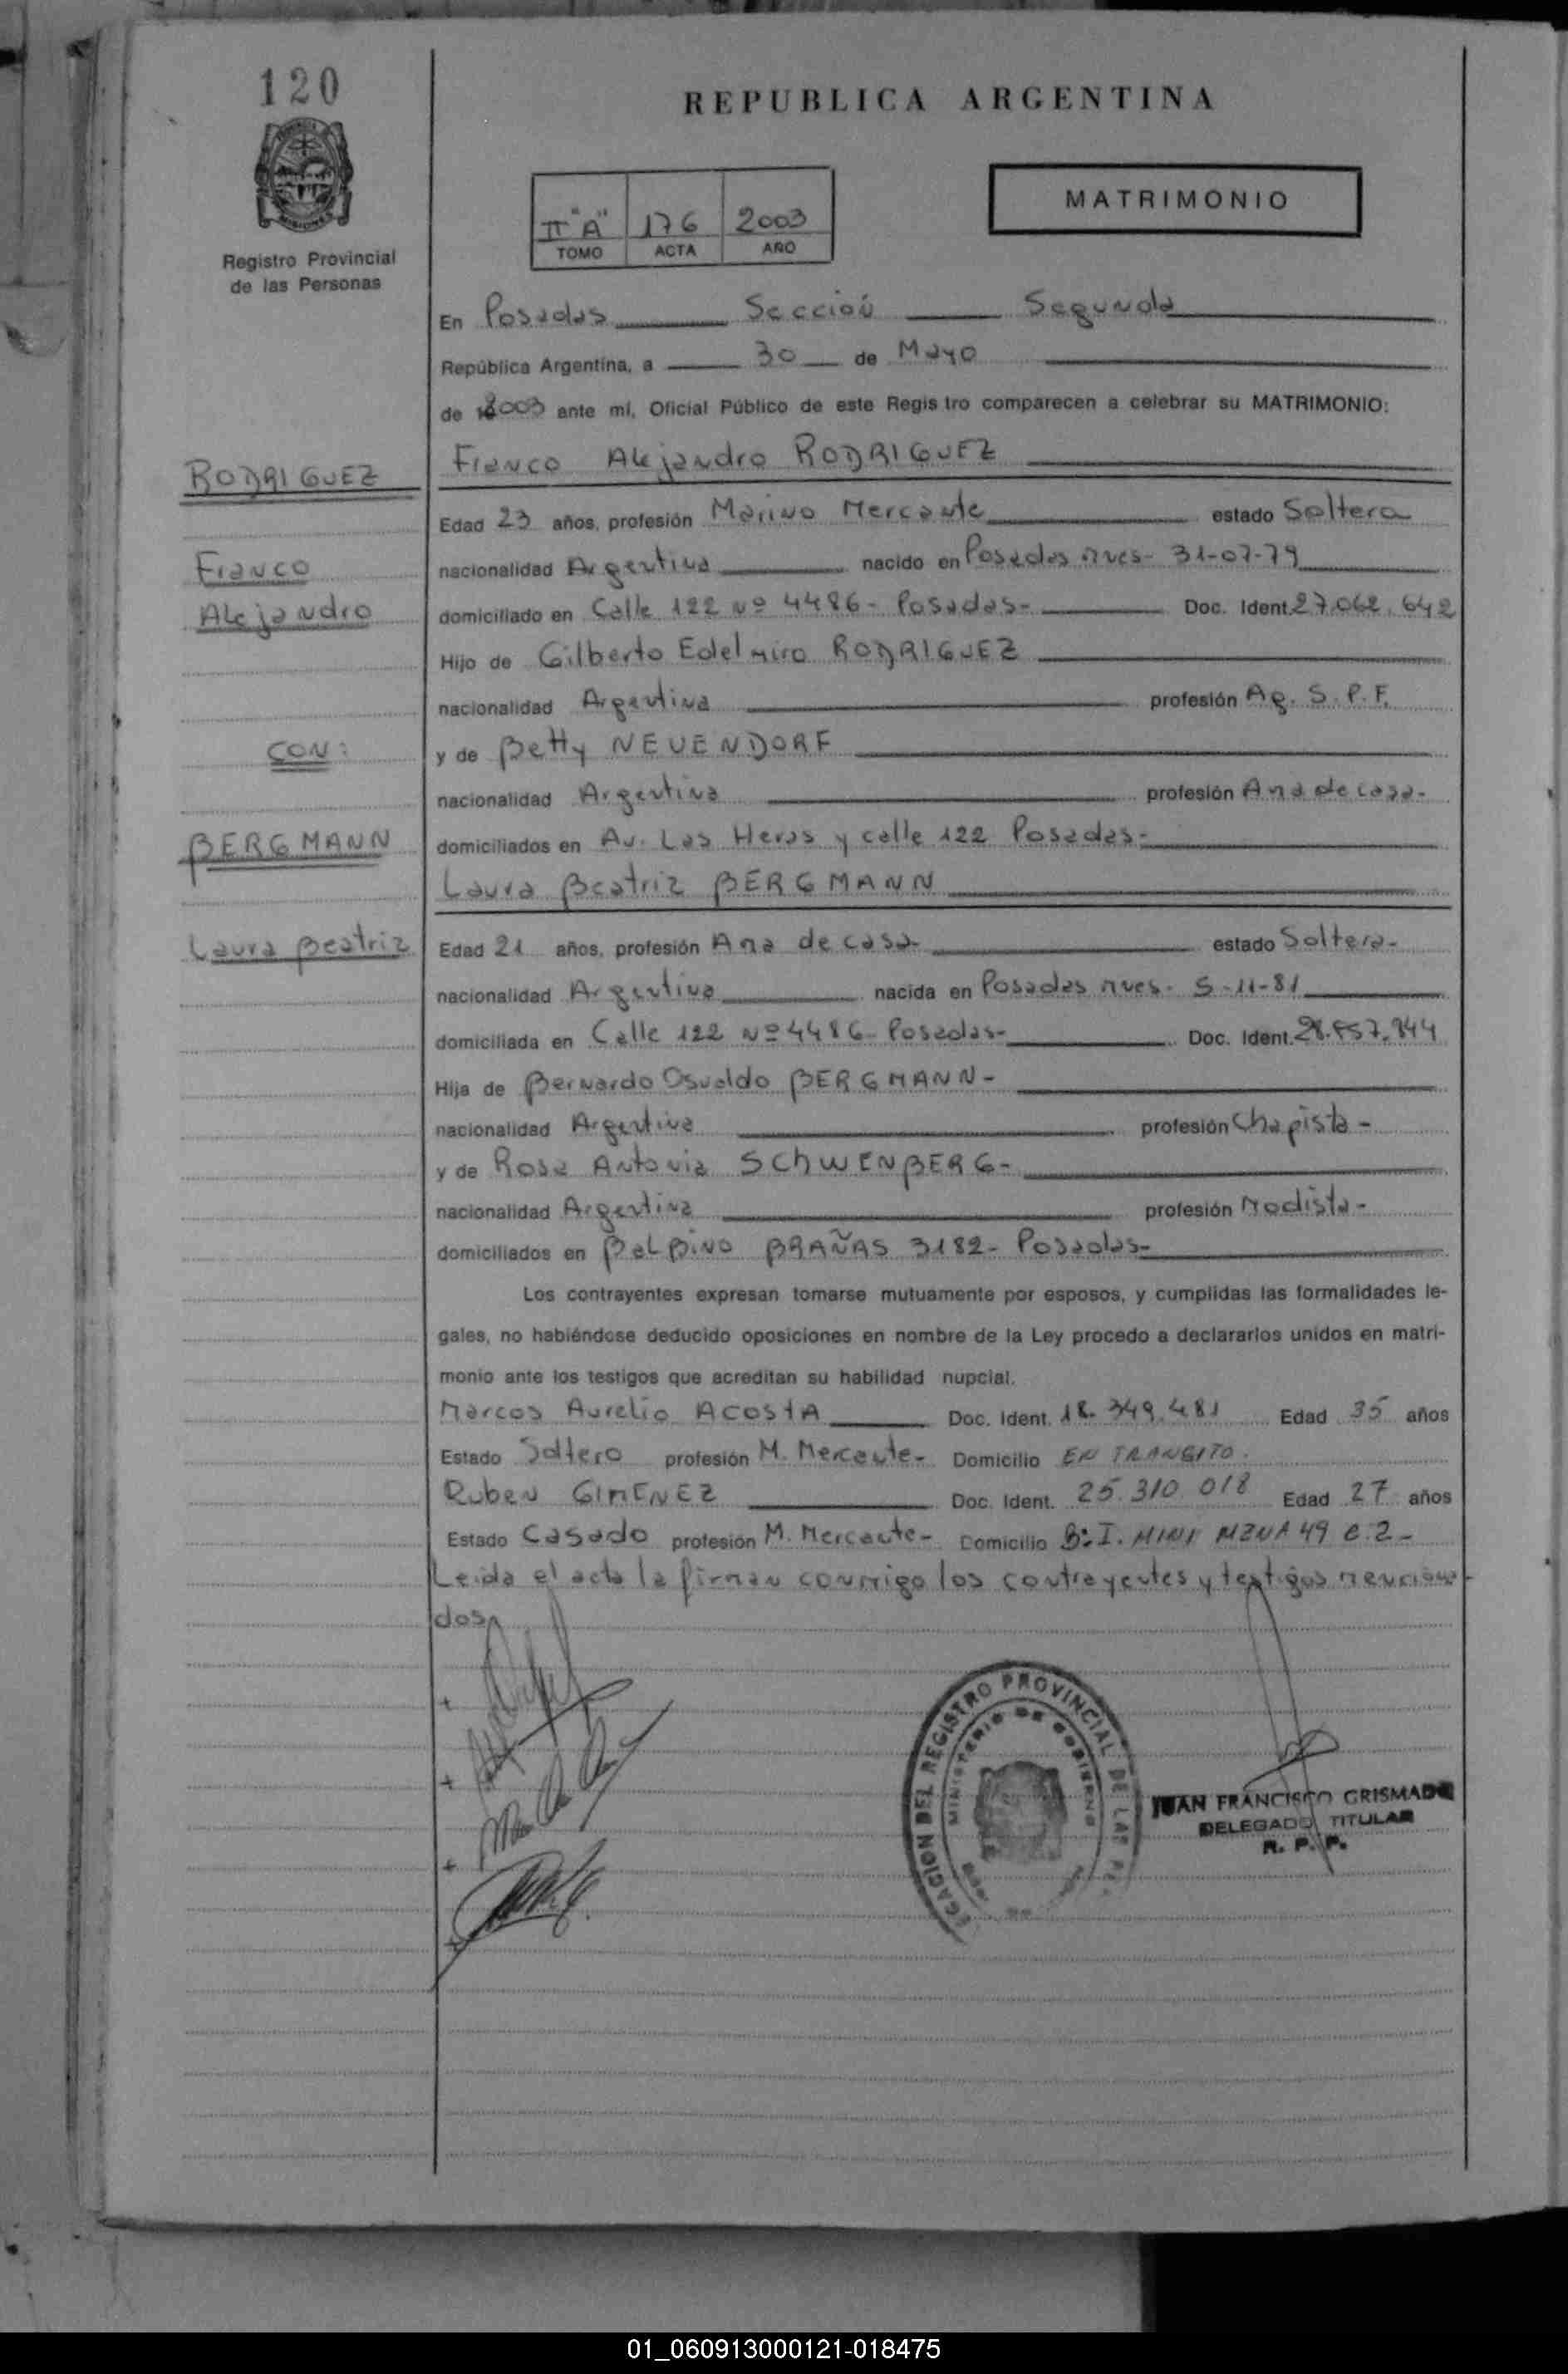 120
REPUBLICA ARGENTINA
MATRIMONIO
II "A" 176 2003
TOMO ACTA AÑO
Registro Provincial
de las Personas
En Posadas Sección Segunda
República Argentina, a 30 de Mayo
de 2003 ante mí, Oficial Público de este Regis tro comparecen a celebrar su MATRIMONIO:
RODRIGUEZ
Franco Alejandro RODRIGUEZ
Edad 23 años, profesión Marino Mercante estado Soltero
Franco
nacionalidad Argentina nacido en Posadas Mnes- 31-07-79
Alejandro
domiciliado en Calle 122 Nº 4486- Posadas- Doc. Ident. 27.062.642
Hijo de Gilberto Edelmiro RODRIGUEZ
nacionalidad Argentina profesión Ag. S.P.F.
CON:
y de Betty NEUENDORF
nacionalidad Argentina profesión Ama de casa-
BERGMANN
domiciliados en Av. Las Heras y calle 122 Posadas-
Laura Beatriz BERGMANN
Laura Beatriz
Edad 21 años, profesión Ama de casa- estado Soltera-
nacionalidad Argentina nacida en Posadas Mnes- 5-11-81
domiciliada en Calle 122 Nº 4486- Posadas- Doc. Ident.
Hija de Bernardo Osvaldo BERGMANN-
nacionalidad Argentina profesión Chapista-
y de Rosa Antonia SCHWENBERG-
nacionalidad Argentina profesión Modista-
domiciliados en BalBino BRAÑAS 3182- Posadas-
Los contrayentes expresan tomarse mutuamente por esposos, y cumplidas las formalidades le-
gales, no habiéndose deducido oposiciones en nombre de la Ley procedo a declararlos unidos en matri-
monio ante los testigos que acreditan su habilidad nupcial.
Marcos Aurelio ACOSTA Doc. Ident. 18.349.481 Edad 35 años
Estado Soltero profesión M. Mercante- Domicilio EN TRANSITO.
Ruben GIMENEZ Doc. Ident. 25.310.018 Edad 27 años
Estado Casado profesión M. Mercante- Domicilio Bº I. MINI MZNA 49 C.2-
Leida el acta la firman conmigo los contrayentes y testigos menciona-
dos
DELEGACION DEL REGISTRO PROVINCIAL DE LAS PE
MINISTERIO DE GOBIERNO
JUAN FRANCISCO GRISMADO
DELEGADO TITULAR
R. P. P.
01_060913000121-018475